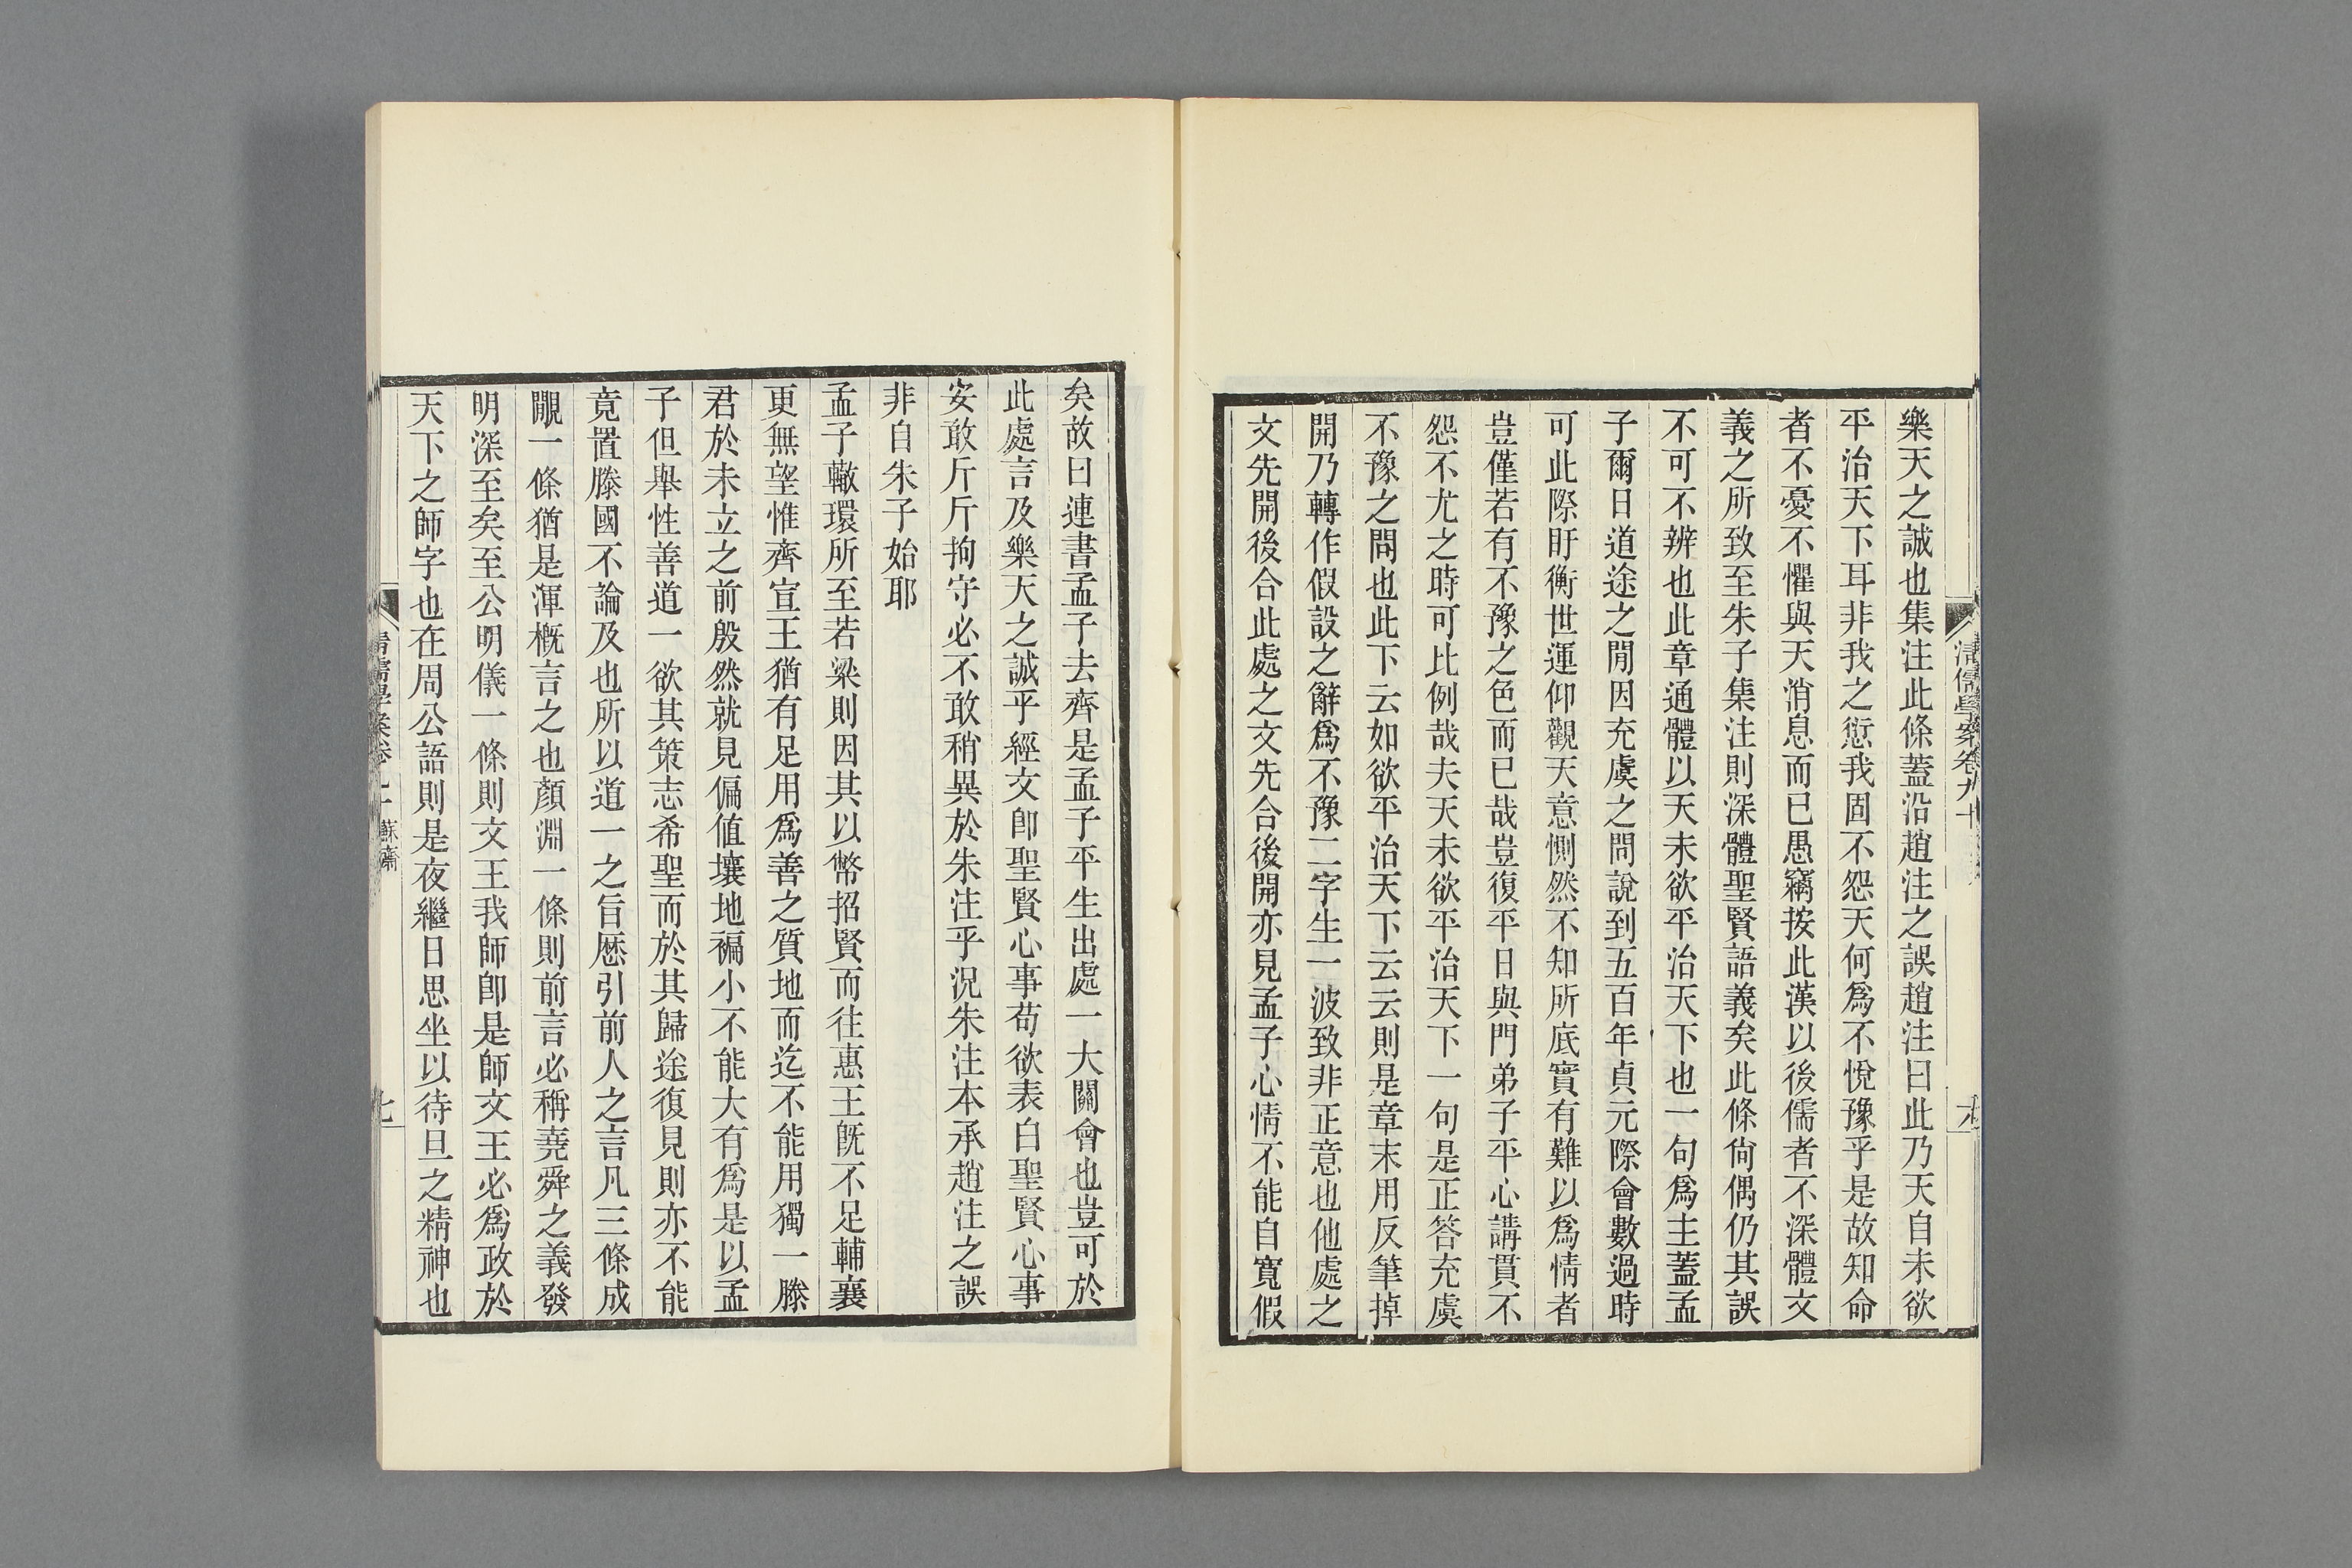 樂天之誠也集注此條蓋沿趙注之誤趙注曰此乃天自未欲
平治天下耳非我之愆我固不怨天何爲不悅豫乎是故知命
者不憂不懼與天消息而已愚竊按此漢以後儒者不深體文
義之所致至朱子集注則深體聖賢語義矣此條尙偶仍其誤
不可不辨也此章通體以天未欲平治天下也一句爲主蓋孟
子爾日道途之閒因充虞之問說到五百年貞元際會數過時
可此際盱衡世運仰觀天意惻然不知所底實有難以爲情者
豈僅若有不豫之色而已哉豈復平日與門弟子平心講貫不
怨不尤之時可比例哉夫天未欲平治天下一句是正答充虞
不豫之問也此下云如欲平治天下云云則是章末用反筆掉
開乃轉作假設之辭爲不豫二字生一波致非正意也他處之
文先開後合此處之文先合後開亦見孟子心情不能自寬假
矣故曰連書孟子去齊是孟子平生出處一大關會也豈可於
此處言及樂天之誠乎經文卽聖賢心事苟欲表白聖賢心事
安敢斤斤拘守必不敢稍異於朱注乎況朱注本承趙注之誤
非自朱子始耶
孟子轍環所至若梁則因其以幣招賢而往惠王旣不足輔襄
更無望惟齊宣王猶有足用爲善之質地而迄不能用獨一滕
君於未立之前殷然就見偏値壤地褊小不能大有爲是以孟
子但舉性善道一欲其策志希聖而於其歸途復見則亦不能
竟置滕國不論及也所以道一之旨厯引前人之言凡三條成
覵一條猶是渾槪言之也顏淵一條則前言必稱堯舜之義發
明深至矣至公明儀一條則文王我師卽是師文王必爲政於
天下之師字也在周公語則是夜繼日思坐以待旦之精神也
清儒學案卷九十
蘇齋
七